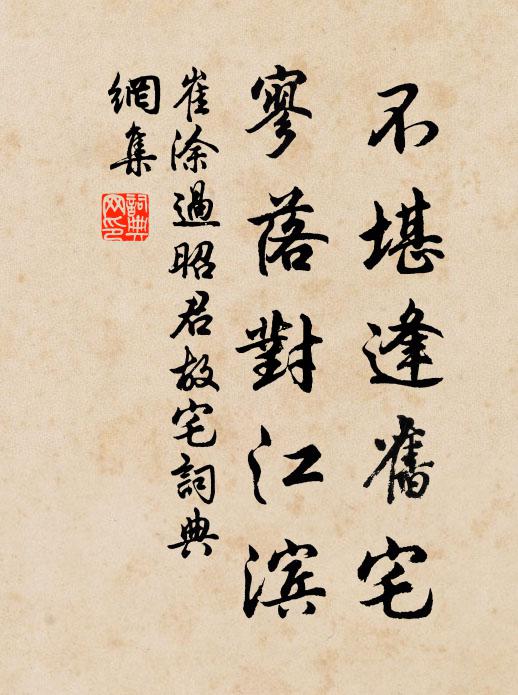 不堪逢舊宅
寥落對江滨
崔涂過昭君故宅詞典
網集
詞典
网印